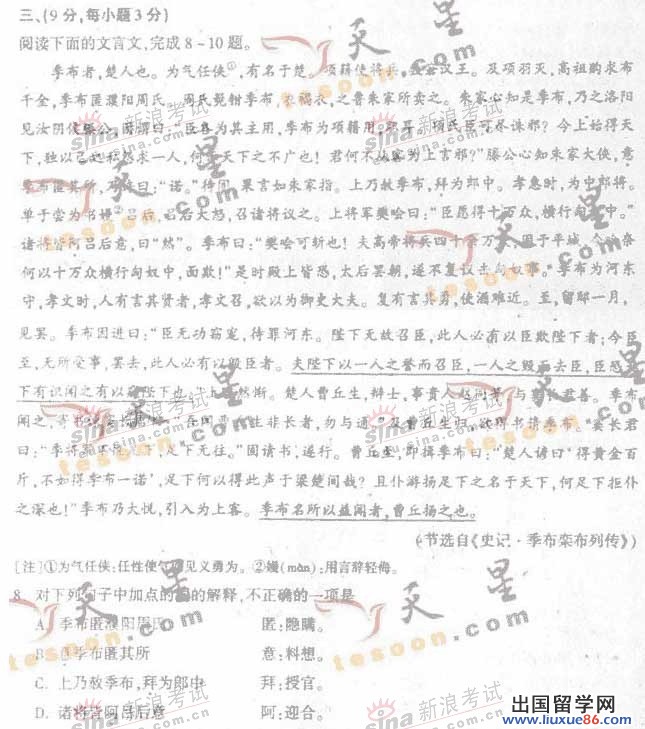 三、(9分,每小题3分)
阅读下面的文言文,完成8~10题。
季布者,楚人也。为气任侠①,有名于楚。项籍使将兵,数窘汉王。及项羽灭,高祖购求布
千金,季布匿濮阳周氏。周氏髡钳季布,衣褐衣,之鲁朱家所卖之。朱家心知是季布,乃之洛阳
见汝阴侯滕公,因谓曰:"臣各为其主用,季布为项籍用,职耳。项氏臣可尽诛邪?今上始得天
下,独以己之私怨求一人,何示天下之不广也!君何不从容为上言邪?"滕公心知朱家大侠,意
季布匿其所,乃许曰:"诺。"待间,果言如朱家指。上乃赦季布,拜为郎中。孝惠时,为中郎将。
单于尝为书嫚②吕后,吕后大怒,召诸将议之。上将军樊哙曰:"臣愿得十万众,横行匈奴中。"
诸将皆阿吕后意,曰"然"。季布曰:"樊哙可斩也!夫高帝将兵四十余万众,困于平城,今哙奈
何以十万众横行匈奴中,面欺!"是时殿上皆恐,太后罢朝,遂不复议击匈奴事。季布为河东
守,孝文时,人有言其贤者,孝文召,欲以为御史大夫。复有言其勇,使酒难近。至,留邸一月,
见罢。季布因进曰:"臣无功窃宠,待罪河东。陛下无故召臣,此人必有以臣欺陛下者;今臣
至,无所受事,罢去,此人必有以毁臣者。夫陛下以一人之誉而召臣,一人之毁而去臣,臣恐天
下有识闻之有以窥陛下也。"上默然惭。楚人曹丘生,辩士,事贵人赵同等,与窦长君善。季布
闻之,寄书谏窦长君曰: 非长者,勿与通。"及曹丘生归,欲得书请季布。窦长君
曰:"季将军不说足下,足下无往。"固请书,遂行。曹丘至,即揖季布曰:"楚人谚曰'得黄金百
斤,不如得季布一诺',足下何以得此声于梁楚间哉?且仆游扬足下之名于天下,何足下拒仆
之深也!"季布乃大悦,引入为上客。季布名所以益闻者,曹丘扬之也。
(节选自《史记·季布栾布列传》)
[注]①为气任侠:任性使气,见义勇为。②嫚(màn):用言辞轻侮。
8. 对下列句子中加点的词的解释,不正确的一项是
A. 季布匿濮阳周氏 匿:隐瞒。
B. 意季布匿其所 意:料想。
C. 上乃赦季布,拜为郎中 拜:授官。
D. 诸将皆阿吕后意 阿:迎合。
天星
tesoon.com
sina 新浪考试
sina.com.cn
出国留学网
www.liuxue86.com